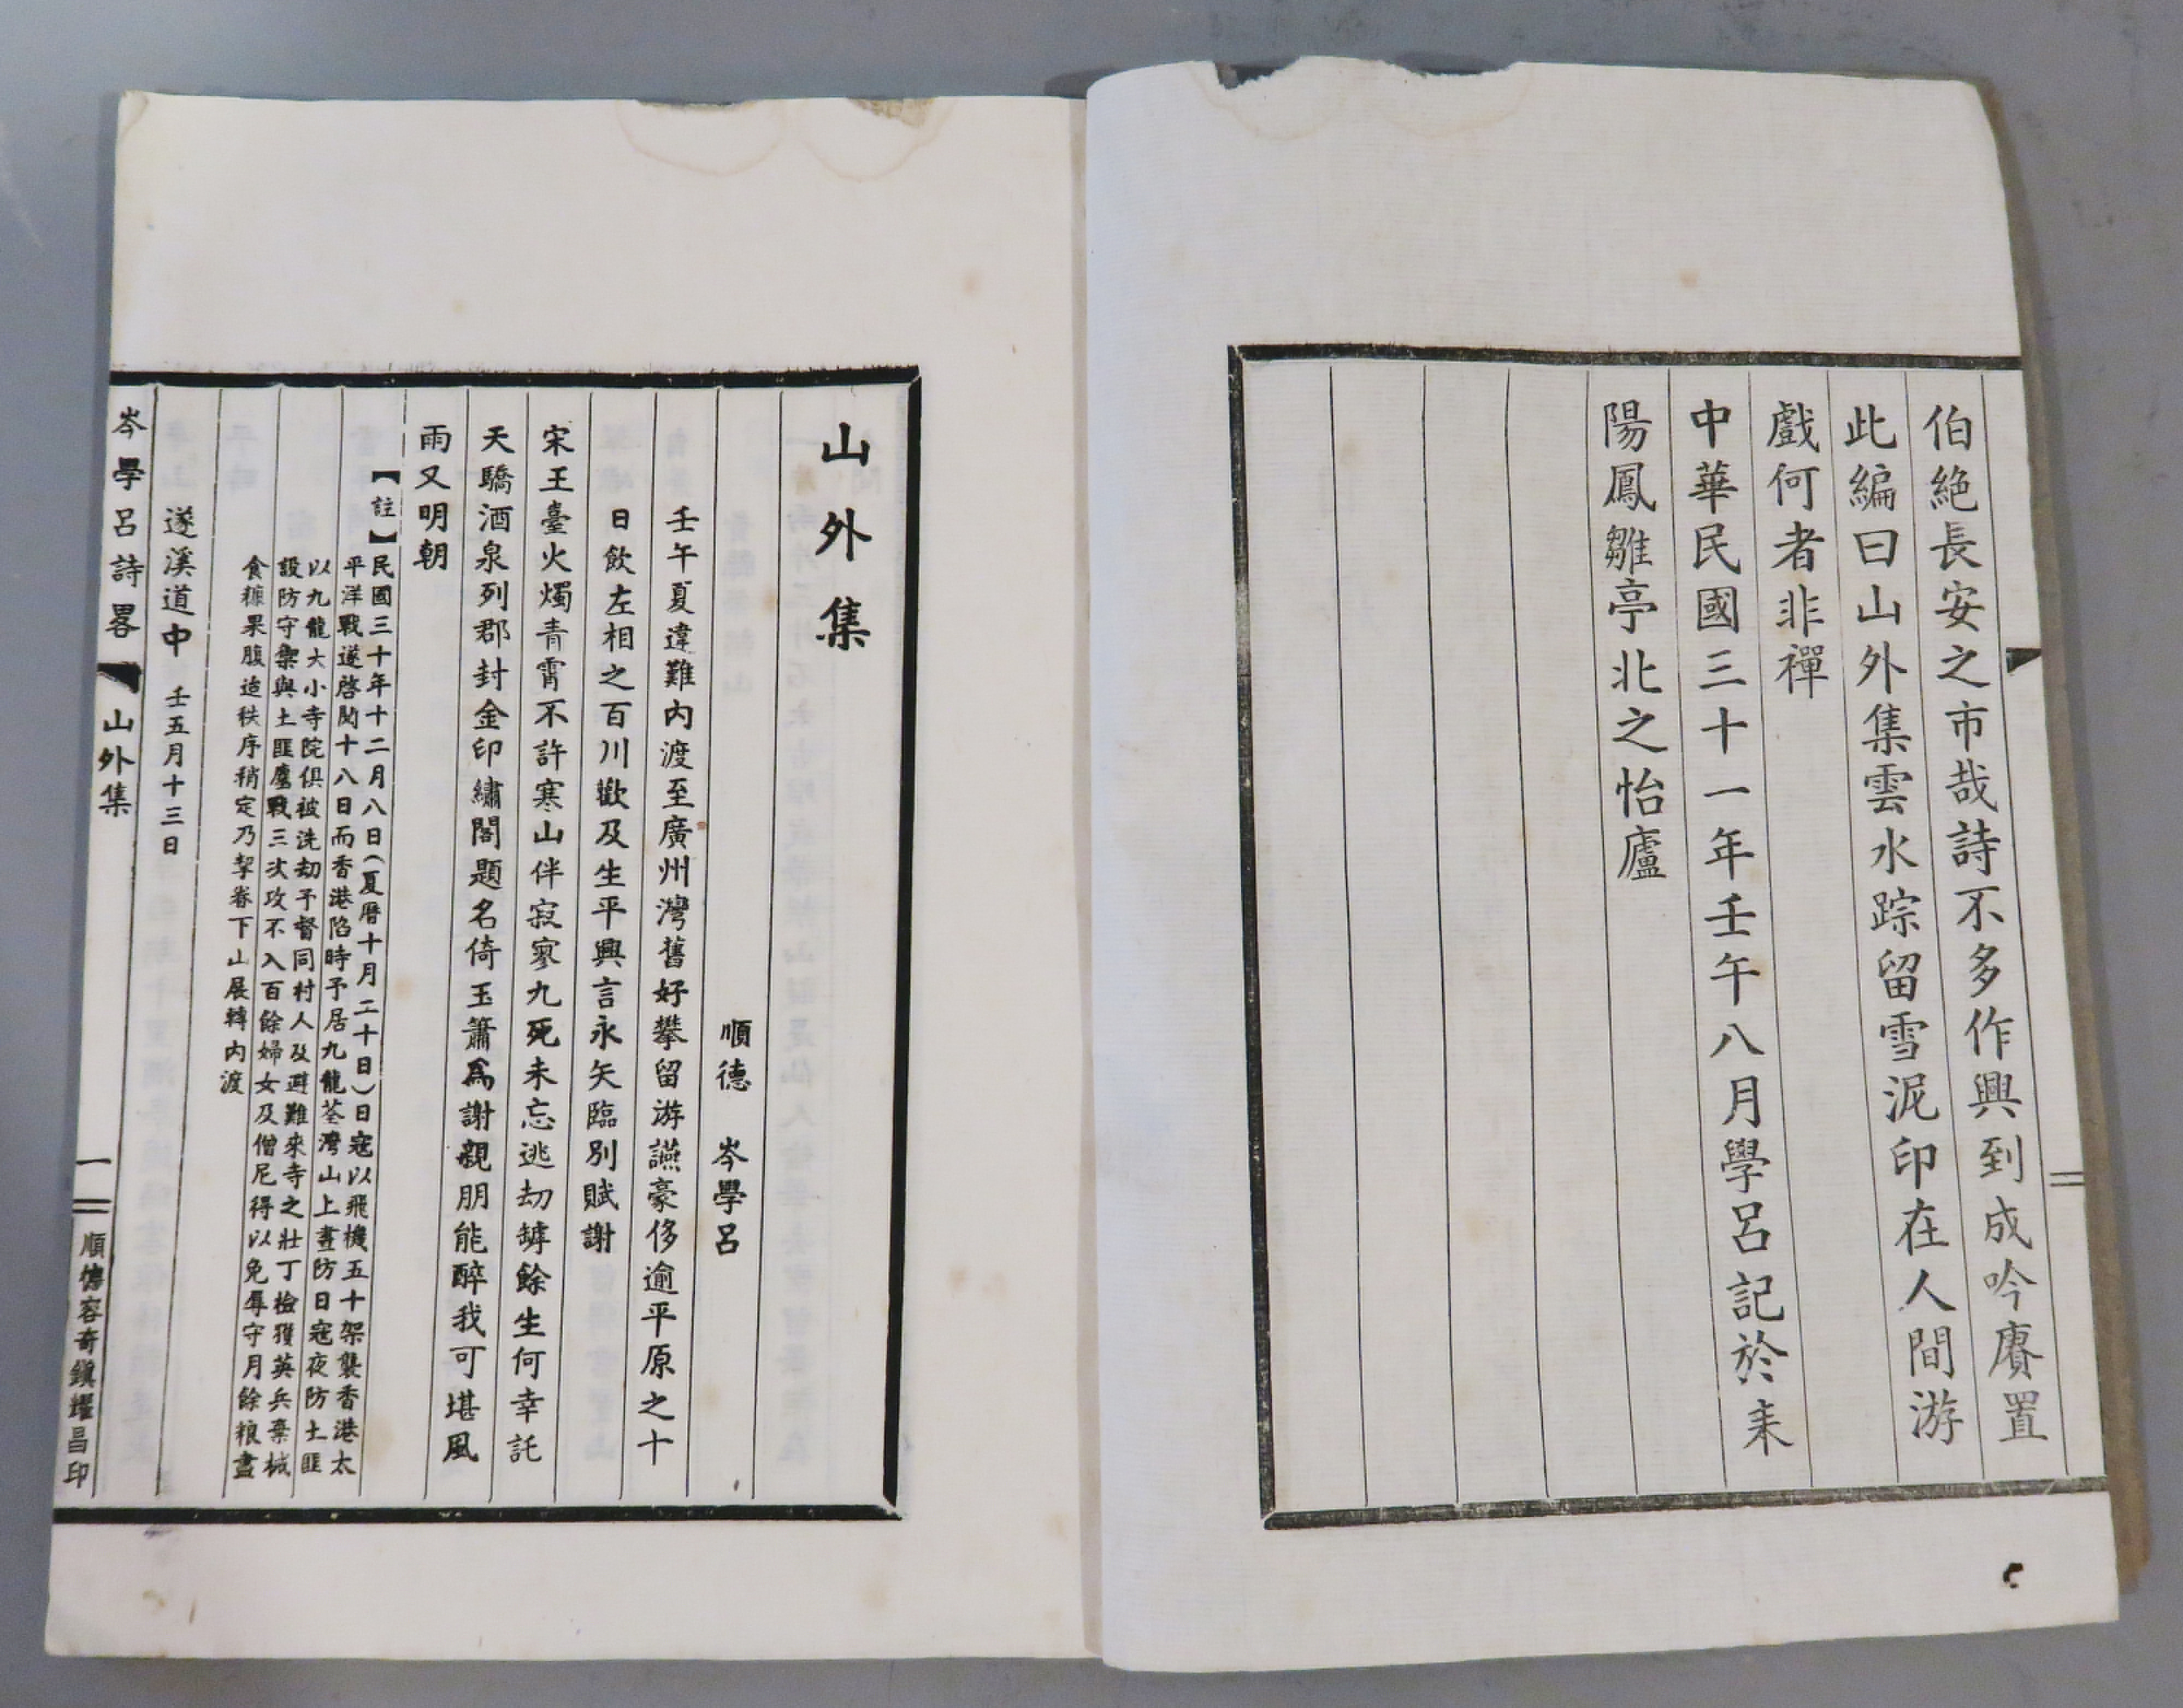 伯絶長安之市哉詩不多作興到成吟賡置
此編曰山外集雲水踪留雪泥印在人間游
戲何者非禪
中華民國三十一年壬午八月學呂記於耒
陽鳳雛亭北之怡廬
山外集
順德　岑學呂
壬午夏違難内渡至廣州灣舊好攀留游讌豪侈逾平原之十
日飲左相之百川歡及生平興言永矢臨別賦謝
宋王臺火燭青霄不許寒山伴寂寥九死未忘逃刼罅餘生何幸託
天驕酒泉列郡封金印繡閣題名倚玉簫爲謝親朋能醉我可堪風
雨又明朝
【註】民國三十年十二月八日(夏曆十月二十日)日寇以飛機五十架襲香港太
平洋戰遂啓閱十八日而香港陷時予居九龍荃灣山上晝防日寇夜防土匪
以九龍大小寺院俱被洗刼予督同村人及避難來寺之壯丁檢獲英兵棄械
設防守禦與土匪鏖戰三次攻不入百餘婦女及僧尼得以免辱守月餘粮盡
食糠果腹迨秩序稍定乃挈眷下山展轉内渡
遂溪道中　壬五月十三日
岑學呂詩畧　山外集　一　順德容奇鎮耀昌印